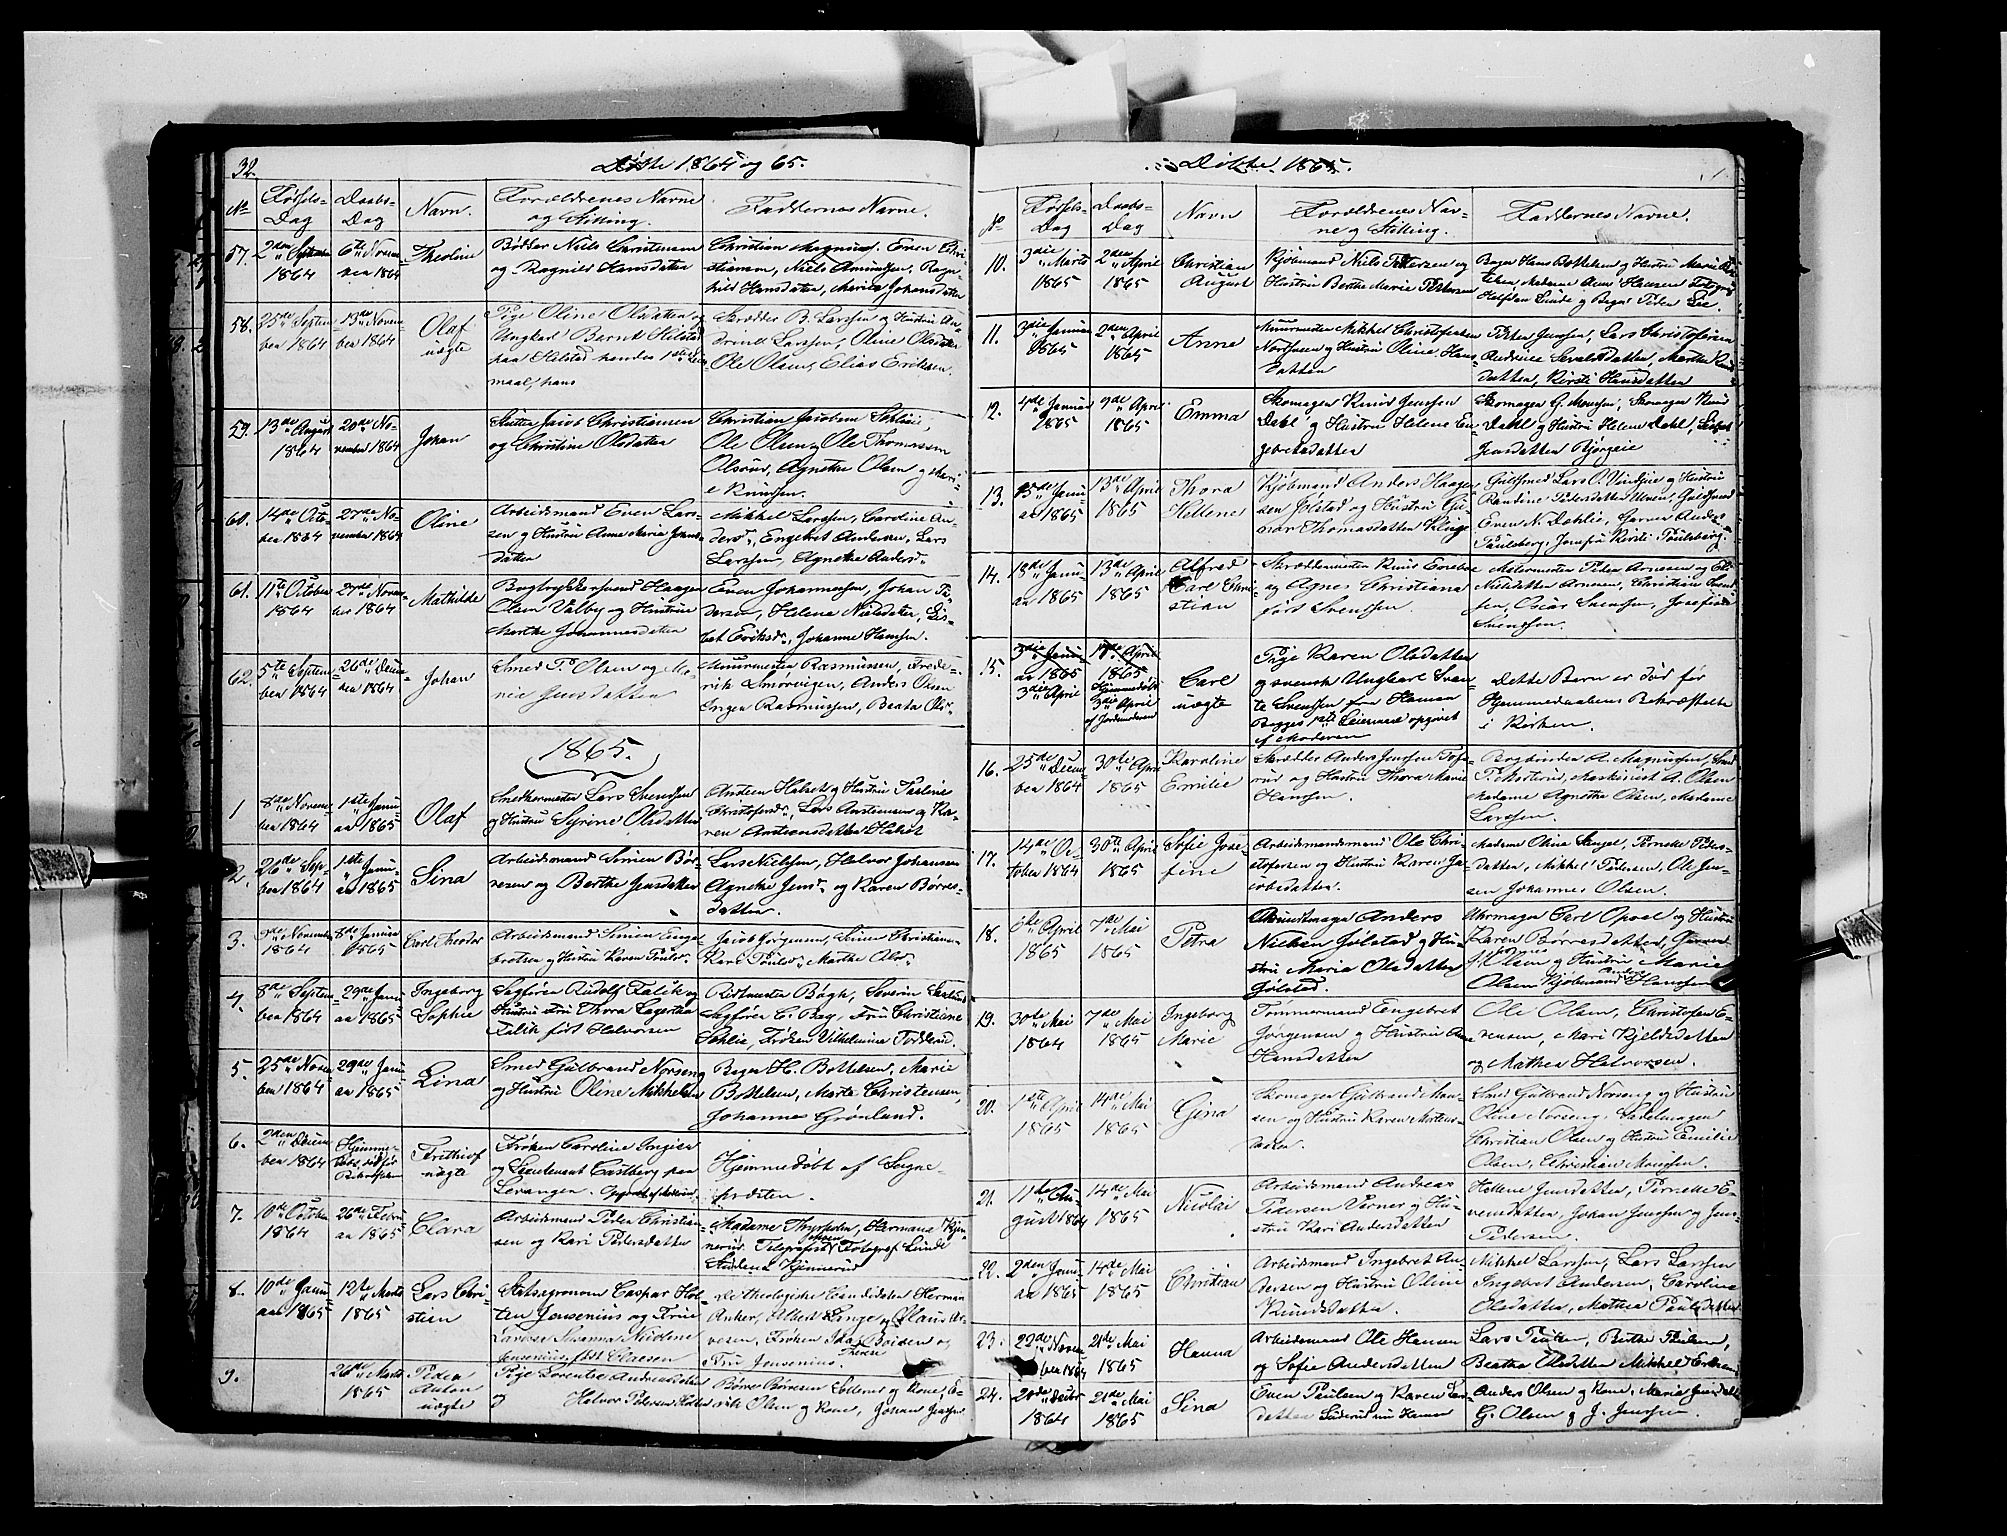 32.
Døbte 1864 og 65.
No
Fødsels-
Dag
Daabs-
Dag
Navn.
Forældrenes Navne
og Stilling.
Faddernes Navne.
57.
2den Septem
1864
6te Novem
ber 1864
Theoline
Bødker Niels Christensen
og Ragnild Hansdatter
Christian Magnus, Even Chri-
stiansen, Niels Amundsen, Ragn-
hild Hansdatter, Maria Johansdatter
58.
25de Septem
ber 1864
13de Novem
ber 1864
Olaf
uægte
Pige Oline Olsdatter og
Ungkarl Bernt Hilstad
paa Hilstad hendes 1ste Leier-
maal, hans
Skrædder B. Larssen og Hustru An-
Larssen, Oline Olsdatter
Ole Olsen, Elias Eriksen.
59.
13de August
1864
20de No-
vember 1864
Johan
Jacob Christiansen
og Christine Olsdatter
Christian Jacobsen
Ole Olsen, Ole Thomassen
Agnethe Olsen og Mari-
e Knudsen.
60.
14de Octo-
ber 1864
27de No-
vember 1864
Oline
Arbeidsmand Even Lars-
sen og Hustru Anne Maria Johns-
datter
Mikkel Larssen, Caroline An-
dersd., Engebret Andersen, Lars
Larssen, Agnethe Andersd.
61.
11te October
1864
27de Novem-
ber 1864
Mathilde
Bogtrykkersvend Haagen
Olsen Valby og Hustru
Marthe Johannesdatter
Even Johannessen, Johan Pe-
dersen, Helena Nielsdatter, Lis-
bet Eriksd., Johanne Hanssen.
62.
5te Septem
ber 1864
26de Decem-
ber 1864
Johan
Smed P. Olsen og Ma-
rie Jensdatter
Muurmester Rasmussen, Frede-
rik Smørvigen, Anders Olsen
Inger Rasmussen, Beata Olsd.
1865.
1
8de Novem
ber 1864
1ste Janu
ar 1865
Olaf
Smedkermester Lars Svendsen
og Hustru Syrine Olsdatter
Andreas Halset og Hustru Pauline
Christofersd., Lars Andersen og Ka-
ren Halset
2.
26de Sep-
ber 1864
1ste Janu-
ar 1865
Sina
Arbeidsmand Simen Bør-
resen og Berthe Jensdatter
Lars Nielsen, Halvor Johansen
Agnethe Jensd. og Karen Børres-
datter.
3.
November
1864
8de Januar
1865
Carl Theodor
Arbeidsmand Simen Enge-
bretsen og Hustru Karen Paulsd.
Jacob Jørgensen, Simen Christiansen
Kari Paulsd., Marthe Olsd.
4.
8de Septem
ber 1864
29de Janu
ar 1865
Ingeborg
Sophie
Sagfører Rudolf Falck og
Hustru Fru Thora Lagertha
Falck født Halvorsen
Ridtmester Bøgh, Severin
Sagfører C. Bay, Fru Christiane
Frøken Vilhelmine Todderud.
5.
25de Novem
ber 1864
29de Janu
ar 1865
Lina
Smed Gulbrand Norseng
og Hustru Oline Mikkelsen
Bager H. Bottelsen, Marie
Bottelsen, Marte Christensen,
Johannes Grønland.
6.
2den Decem
ber 1864
Hjemme-
døbt,
Frithiof
uægte
Frøken Caroline
og Lieutenant Castberg paa
Levanger.
Hjemmedøbt af Sogne-
præsten.
7.
10de October
1864
26de Febru
ar 1865
Clara
Arbeidsmand Peder Christian-
sen og Kari Pedersdatter
Madame Hermana Kjen-
nerud, Telegrafist Jensen, Fotograf Lunde
Kjennerud
8.
10de Janu-
ar 1865
12te Marts
1865
Lars Chri-
stien
Statsagronom Caspar Hol-
ten Jensenius og Frue
Susanna Nicoline
Jensenius født Claesen
De theologiske Candidater Herman
Anker, Albert Lange og Olaus Ar-
vesen, Frøken Ida Boiden og
Therese
Fru Jensenius.
9.
26de Marts
1865
Peder
Anton
uægte
Pige Lorentse Andreasdatter
og Halvor Pedersen
Børre Børresen og Kone, E-
rik Olsen og Kone, Johan Jenssen
Døbte 1865.
No
Fødsels-
Dag
Daabs-
Dag
Navn
Forældrenes Nav-
ne og Stilling.
Faddernes Navne.
10.
3die Marts
1865
2den April
1865
Christian
August
Kjøbmand Niels Petersen og
Hustru Berthe Marie Petersen
Bager Hans Bottelsen og Hustru Marie
Madame Anne Hanssen Fotograf
Halfdan Lunde og Bager Peter Lie.
11.
3die Januar
1865
2den April
1865
Anne
Muurmester Mikkel Christofersen
Norlien og Hustru Oline Hans-
datter
Peter Jenssen, Lars Christofersen
Andrine Sevaldsdatter, Marthe Knuds-
datter, Kirsti Hansdatter
12.
4de Januar
1865
9de April
1865
Emma
Skomager Knud Jenssen
Dahl og Hustru Helene En-
gebretsdatter
Skomager G. Monssen, Skomager Knud
Dahl og Hustru Helene Dahl, Lisbet
Jensdatter Bjørgeie
13.
15de Janu-
ar 1865
13de April
1865
Thora
Hellene
Kjøbmand Anders Haagen-
sen Jølstad og Hustru Gu-
nor Thomasdatter Klinge
Guldsmed Lars O. Vindju og Hustru
Randine Pedersdatter Guldsmed
Even N. Dahlie, Garver Anders
Paulsberg, Jomfru Kirsti Paulsberg.
14.
18de Janu-
ar 1865
13de April
1865
Alfred
Carl Chri-
stian
Skræddermester Knut
og Agnes Christiana
født Svenssen
Malermester Peter Arnesen og
Nilsdatter Arnesen, Christian Svend-
sen, Oscar Svenssen, Josefine
Svenssen.
15.
3die Janu-
ar 1865
3die April
17de April
1865
Hjemmedøbt
3die April
af Jordemoderen
Carl
uægte
Pige Karen Olsdatter
og svensk Ungkarl Svan-
te Svenssen fra Hamar
Begges 1ste Leiermaal opgivet
af Moderen
Dette Barn er død før
Hjemmedaabens Bekræftelse
i Kirken.
16.
25de Decem
ber 1864
30te April
1865
Karoline
Emilie
Skrædder Anders Jenssen
og Hustru Thora Marie
Hanssen.
Bogbinder A. Magnussen, Smed
P. Mostrud, Maskinist A. Olsen
Madame Agnethe Olsen, Madame
Larssen.
17.
14de Oc-
tober 1864
30te April
1865
Sofie Jose-
fine
Arbeidsmand Ole Chri-
stofersen og Hustru Karen Ja-
cobsdatter.
Madame Oline Pernelle Peders-
datter, Mikkel Pedersen, Ole Jen-
sen Johannes Olsen.
18.
April
1865
7de Mai
1865
Petra
Anders
Nielsen Jølstad og Hu-
stru Maria Olsdatter
Jølstad.
Uhrmager Carl Opsal og Hustru
Karen Børresdatter,
Olsen og Hustru Marie
Olsen Kjøbmand Hanssen
19.
30te Mai
1864
7de Mai
1865
Ingeborg
Marie
Tømmermand Engebret
Jørgensen og Hustru Anne
Hansdatter
Ole Olsen, Christofer E-
vensen, Mari Kjeldsdatter
og Mathea Halvorsen.
20.
1ste April
1865
14de Mai
1865
Gina
Skomager Gulbrand Mon-
sen og Hustru Karen
Smed Gulbrand Norseng og Hustru
Oline Norseng, Sadelmager
Christian Olsen og Hustru Emilie
Olsen, Christian Monssen.
21.
11te Au-
gust 1864
14de Mai
1865
Nicolai
Arbeidsmand Andreas
Pedersen Verner og Hu-
stru Kari Andersdatter
Hellene Jensdatter, Pernelle E-
vensdatter, Johan Jenssen og Jens
Pedersen.
22.
2den Janu
ar 1865
14de Mai
1865
Christian
Arbeidsmand Ingebret An-
dersen og Hustru Oline
Knudsdatter.
Mikkel Larssen, Lars Larssen
Ingebret Andersen, Caroline
Olsdatter, Mathea Paulsdatter.
23.
22de Novem
ber 1864
21de Mai
1865
Hanna
Arbeidsmand Ole Hansen
og Sofie Andersdatter
Lars Poulsen, Berthe Poulsen,
Beathe Olsdatter Mikkel Eriksen
24.
20de Decbr
1864
21de Mai
1865
Sina
Even Paulsen og Karen Lar-
datter
Anders Olsen og Kone, Maria Jensdatter
G. Olsen og J. Jenssen.